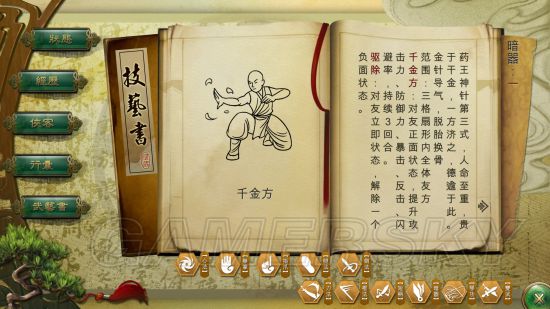 狀態
經歷
俠客
行囊
武藝書
技藝書
千金方
暗器：一
药王神针第三式，人命至重，贵
于千金，一方济之，德逾于此。
金针导气，脱胎换骨
范围：三格，扇形内全体友方
千金方：对友正状态，提升攻
击力、防御力、暴击、反击、闪
避率，持续3回合。
驱除：对友立即状态，解除一个
负面状态。
GAMERSKY